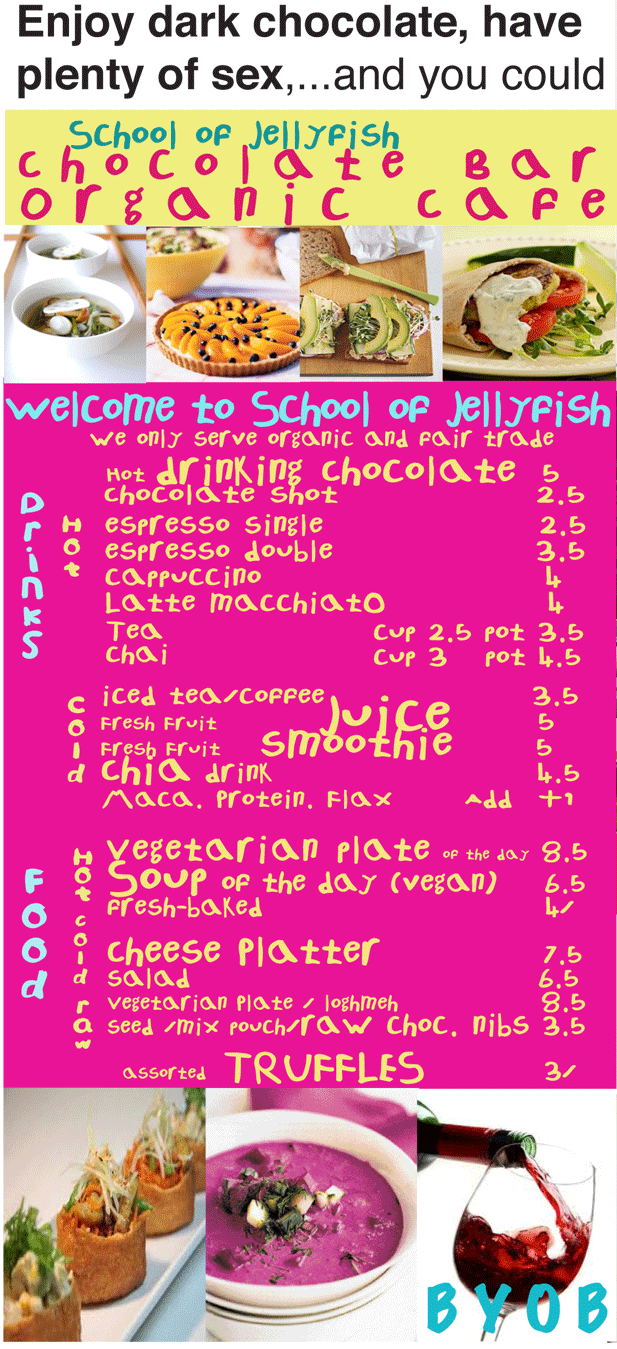 Enjoy dark chocolate, have
plenty of sex,...and you could
School of Jellyfish
chocolate Bar
organic cafe
welcome to School of Jellyfish
we only serve organic and fair trade
Drinks
Hot
Hot drinking chocolate 5
chocolate shot 2.5
espresso single 2.5
espresso double 3.5
cappuccino 4
Latte macchiato 4
Tea cup 2.5 pot 3.5
chai cup 3 pot 4.5
cold
iced tea/coffee 3.5
Fresh Fruit Juice 5
Fresh Fruit Smoothie 5
chia drink 4.5
Maca. Protein. Flax Add +1
Food
Hot
vegetarian plate of the day 8.5
Soup of the day (vegan) 6.5
fresh-baked 4/
cold
cheese platter 7.5
salad 6.5
raw
vegetarian plate / loghmeh 8.5
seed /mix pouch/raw choc. nibs 3.5
assorted TRUFFLES 3/
BYOB